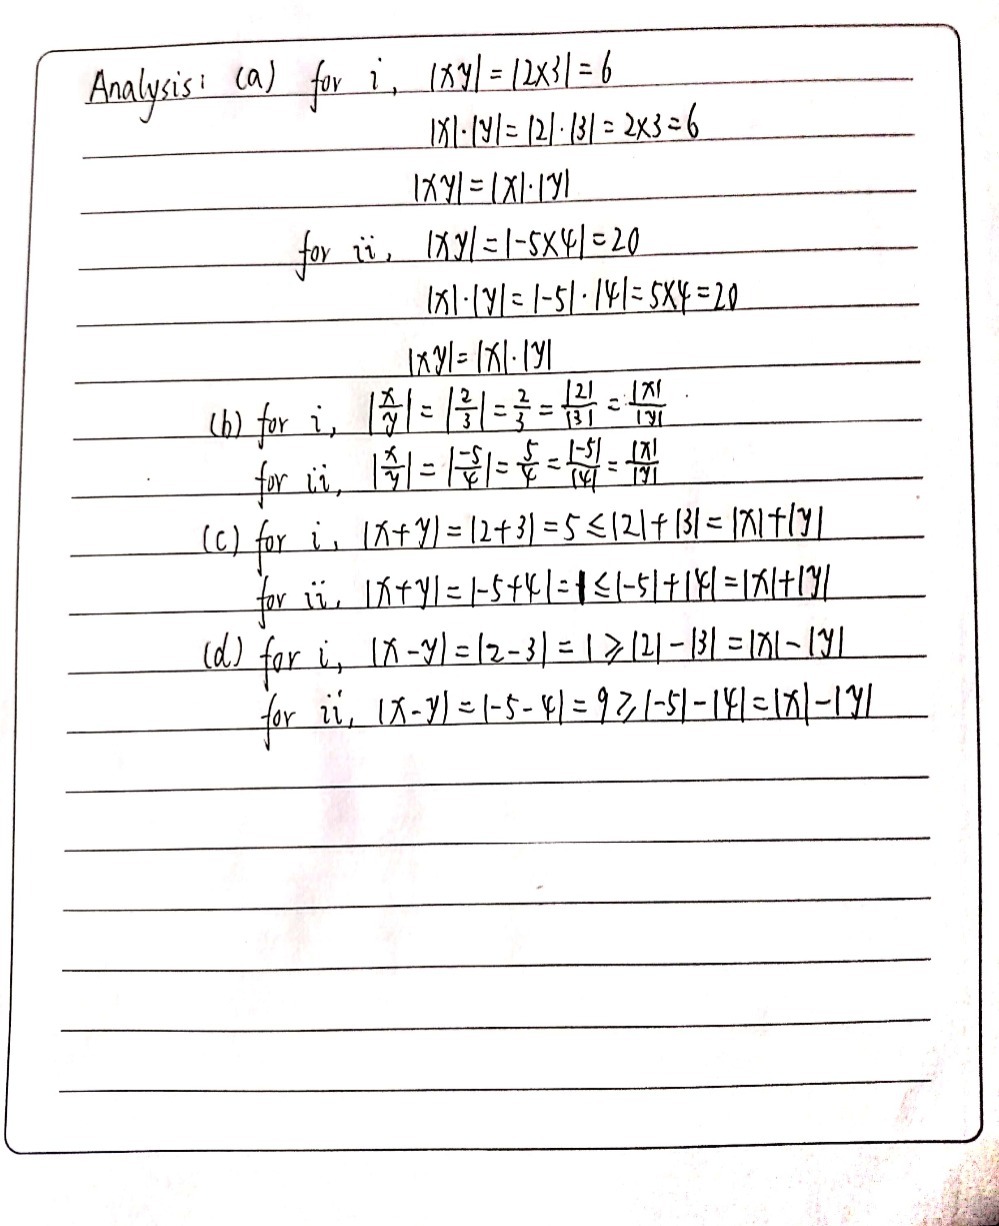 Analysis: (a) for i, |xy| = |2×3| = 6
|x|·|y| = |2|·|3| = 2×3 = 6
|xy| = |x|·|y|
for ii, |xy| = |-5×4| = 20
|x|·|y| = |-5|·|4| = 5×4 = 20
|xy| = |x|·|y|
(b) for i, |x/y| = |2/3| = 2/3 = |2|/|3| = |x|/|y|
for ii, |x/y| = |-5/4| = 5/4 = |-5|/|4| = |x|/|y|
(c) for i, |x+y| = |2+3| = 5 ≤ |2|+|3| = |x|+|y|
for ii, |x+y| = |-5+4| = 1 ≤ |-5|+|4| = |x|+|y|
(d) for i, |x-y| = |2-3| = 1 ≥ |2|-|3| = |x|-|y|
for ii, |x-y| = |-5-4| = 9 ≥ |-5|-|4| = |x|-|y|